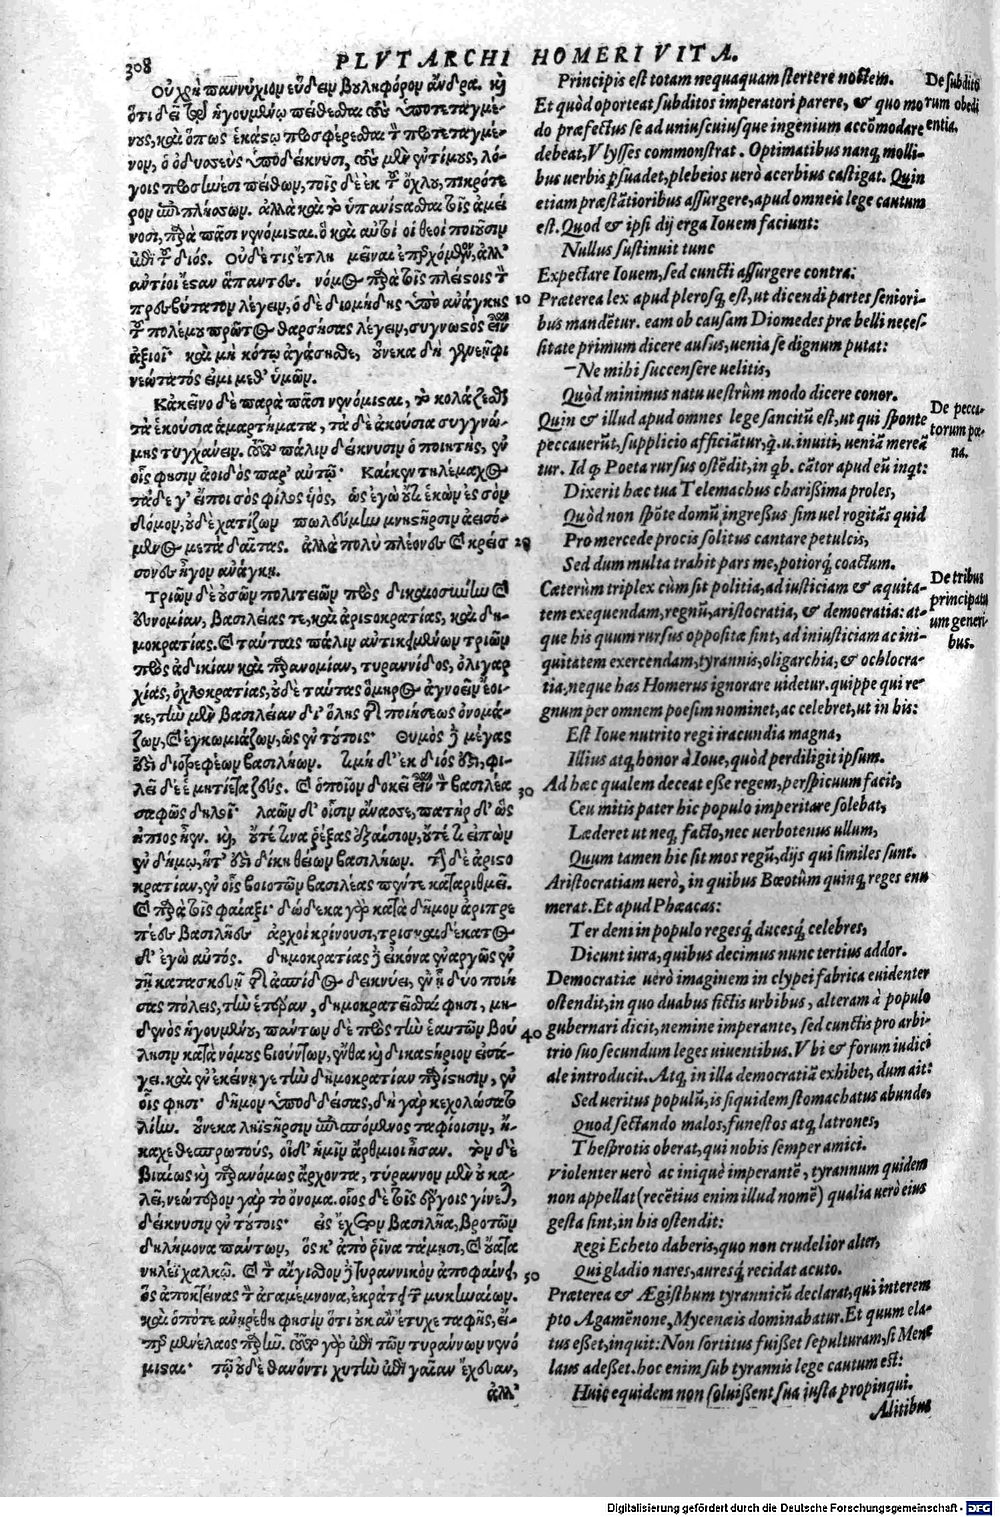 308 PLVTARCHI HOMERI VITA.
Οὐ χρὴ παννύχιον εὕδειν βουληφόρον ἄνδρα. καὶ
ὅτι δεῖ τῷ ἡγουμένῳ πείθεσθαι τοὺς ὑποτεταγμέ-
νους, καὶ ὅπως ἑκάστῳ προσφέρεσθαι τὸν προτεταγμέ-
νον, ὁ ὀδυσσεὺς ὑποδείκνυσι, τοὺς μὲν ἐντίμους, λό-
γοις προσηνέσι πείθων, τοῖς δὲ ἐκ τοῦ ὄχλου, πικρότε
ρον ἐπιπλήσσων. ἀλλὰ καὶ τὸ ὑπανίστασθαι τοῖς ἀμεί
νοσι, παρὰ πᾶσι νενόμισται. ὃ καὶ αὐτοὶ οἱ θεοὶ ποιοῦσιν
ἐπὶ τοῦ διός. Οὐδέ τις ἔτλη μεῖναι ἐπερχόμενον, ἀλλ'
ἀντίοι ἔσαν ἅπαντες. νόμος παρὰ τοῖς πλείστοις τὸν
πρεσβύτατον λέγειν, ὁ δὲ διομήδης ὑπὸ ἀνάγκης 10
τοῦ πολέμου πρῶτος θαρσήσας λέγειν, συγνωστὸς εἶναι
ἀξιοῖ· καὶ μὴ κότῳ ἀγάσησθε, οὕνεκα δὴ γενεῆφι
νεώτατός εἰμι μεθ' ὑμῶν.
Κἀκεῖνο δὲ παρὰ πᾶσι νενόμισται, τὸ κολάζεσθαι
τὰ ἑκούσια ἁμαρτήματα, τὰ δὲ ἀκούσια συγγνώ-
μης τυγχάνειν. τοῦτο πάλιν δείκνυσιν ὁ ποιητής, ἐν
οἷς φησιν ἀοιδὸς παρ' αὐτῷ· Καί κεν τηλέμαχος
τάδε γ' εἴποι σὸς φίλος υἱός, ὡς ἐγὼ οὔτι ἑκὼν ἐς σὸν
δόμον, οὐδὲ χατίζων πωλεύμην μνηστῆρσιν ἀεισό-
μενος μετὰ δαῖτας. ἀλλὰ πολὺ πλέονες καὶ κρείσ 20
σονες ἦγον ἀνάγκῃ.
Τριῶν δὲ οὐσῶν πολιτειῶν πρὸς δικαιοσύνην καὶ
εὐνομίαν, βασιλείας τε, καὶ ἀριστοκρατίας, καὶ δη-
μοκρατίας. καὶ ταύταις πάλιν ἀντικειμένων τριῶν
πρὸς ἀδικίαν καὶ παρανομίαν, τυραννίδος, ὀλιγαρ
χίας, ὀχλοκρατίας, οὐδὲ ταύτας ὅμηρος ἀγνοεῖν ἔοι-
κε, τὴν μὲν βασιλείαν δι' ὅλης τῆς ποιήσεως ὀνομά-
ζων, καὶ ἐγκωμιάζων, ὡς ἐν τούτοις· Θυμὸς δὲ μέγας
ἐστὶ διοτρεφέων βασιλήων. τιμὴ δ' ἐκ διός ἐστι, φι-
λεῖ δέ ἑ μητίετα ζεύς. καὶ ὁποῖον δοκεῖ εἶναι τὸν βασιλέα 30
σαφῶς δηλοῖ· λαῶν δ' οἷσιν ἄνασσε, πατὴρ δ' ὣς
ἤπιος ἦεν. καὶ, οὔτέ τινα ῥέξας ἐξαίσιον, οὔτέ τι εἰπὼν
ἐν δήμῳ, ἥτ' ἐστὶ δίκη θείων βασιλήων. τὴν δὲ ἀριστο
κρατίαν, ἐν οἷς βοιοτῶν βασιλέας πέντε καταριθμεῖ.
καὶ παρὰ τοῖς φαίαξι· δώδεκα γὰρ κατὰ δῆμον ἀριπρε
πέες βασιλῆες ἀρχοὶ κρίνουσι, τρισκαιδέκατος
δ' ἐγὼ αὐτός. δημοκρατίας δὲ εἰκόνα ἐναργῶς ἐν
τῇ κατασκευῇ τῆς ἀσπίδος δεικνύει, ἐν ᾗ δύο ποιή
σας πόλεις, τὴν ἑτέραν, δημοκρατεῖσθαί φησι, μη-
δενὸς ἡγουμένου, πάντων δὲ πρὸς τὴν ἑαυτῶν βού 40
λησιν κατὰ νόμους βιούντων, ἔνθα καὶ δικαστήριον εἰσά-
γει. καὶ ἐν ἐκείνῃ γε τὴν δημοκρατίαν παρίστησιν, ἐν
οἷς φησι· δῆμον ὑποδδείσας, δὴ γὰρ κεχολώσατο
λίην. οὕνεκα ληϊστῆρσιν ἐπισπόμενος ταφίοισιν, ἤ-
καχε θεσπρωτούς, οἱ δ' ἡμῖν ἄρθμιοι ἦσαν. τὸν δὲ
βιαίως καὶ παρανόμως ἄρχοντα, τύραννον μὲν οὐ κα-
λεῖ, νεώτερον γὰρ τὸ ὄνομα. οἷος δὲ τοῖς ἔργοις γίνεται,
δείκνυσιν ἐν τούτοις· εἰς ἔχετον βασιλῆα, βροτῶν
δηλήμονα πάντων, ὅς κ' ἀπὸ ῥῖνα τάμησι, καὶ οὔατα
νηλέϊ χαλκῷ. καὶ τὸν αἴγισθον δὲ τυραννικὸν ἀποφαίνει, 50
ὃς ἀποκτείνας τὸν ἀγαμέμνονα, ἐκράτει τῶν μυκηναίων.
καὶ ὁπότε ἀνῃρέθη φησὶν ὅτι οὐκ ἂν ἔτυχε ταφῆς, εἴ-
περ μενέλαος παρῆν. τοῦτο γὰρ ἐπὶ τῶν τυράννων νενό
μισται· τῷ οὐδὲ θανόντι χυτὴν ἐπὶ γαῖαν ἔχευαν,
ἀλλ'
Principis est totam nequaquam stertere noctem.
Et quòd oporteat subditos imperatori parere, & quo mo
do præfectus se ad uniuscuiusque ingenium accõmodare
debeat, Vlysses commonstrat. Optimatibus nanq; molli-
bus uerbis p̱suadet, plebeios uerò acerbius castigat. Quin
etiam præstãtioribus assurgere, apud omneis lege cautum
est. Quod & ipsi dij erga Iouem faciunt:
Nullus sustinuit tunc
Expectare Iouem, sed cuncti assurgere contra:
Præterea lex apud plerosq; est, ut dicendi partes seniori-
bus mandẽtur. eam ob causam Diomedes præ belli neces-
sitate primum dicere ausus, uenia se dignum putat:
—Ne mihi succensere uelitis,
Quòd minimus natu uestrûm modo dicere conor.
Quin & illud apud omnes lege sancitũ est, ut qui sponte
peccauerũt, supplicio afficiãtur, q̃.u. inuiti, ueniã mereã
tur. Id q; Poeta rursus ostẽdit, in qb. cãtor apud eũ inqt:
Dixerit hæc tua Telemachus charißima proles,
Quòd non spõte domũ ingreßus sim uel rogitãs quid
Pro mercede procis solitus cantare petulcis,
Sed dum multa trahit pars me, potiorq́; coactum.
Cæterùm triplex cùm sit politia, ad iusticiam & æquita-
tem exequendam, regnũ, aristocratia, & democratia: at-
que his quum rursus oppositæ sint, ad iniusticiam ac ini-
quitatem exercendam, tyrannis, oligarchia, & ochlocra-
tia, neque has Homerus ignorare uidetur. quippe qui re-
gnum per omnem poesim nominet, ac celebret, ut in his:
Est Ioue nutrito regi iracundia magna,
Illius atq; honor à Ioue, quòd perdiligit ipsum.
Ad hæc qualem deceat eße regem, perspicuum facit,
Ceu mitis pater hic populo imperitare solebat,
Læderet ut neq; facto, nec uerbotenus ullum,
Quum tamen hic sit mos regũ, dijs qui similes sunt.
Aristocratiam uerò, in quibus Bœotûm quinq; reges enu
merat. Et apud Phæacas:
Ter deni in populo regesq́; ducesq́; celebres,
Dicunt iura, quibus decimus nunc tertius addor.
Democratiæ uerò imaginem in clypei fabrica euidenter
ostendit, in quo duabus fictis urbibus, alteram à populo
gubernari dicit, nemine imperante, sed cunctis pro arbi-
trio suo secundum leges uiuentibus. Vbi & forum indici
ale introducit. Atq; in illa democratiã exhibet, dum ait:
Sed ueritus populũ, is siquidem stomachatus abunde,
Quod sectando malos, funestos atq; latrones,
Thesprotis oberat, qui nobis semper amici.
Violenter uerò ac iniquè imperantẽ, tyrannum quidem
non appellat (recẽtius enim illud nomẽ) qualia uerò eius
gesta sint, in his ostendit:
Regi Echeto daberis, quo non crudelior alter,
Qui gladio nares, auresq́; recidat acuto.
Præterea & Ægisthum tyrannicũ declarat, qui interem
pto Agamẽnone, Mycenæis dominabatur. Et quum ela-
tus eßet, inquit: Non sortitus fuißet sepulturam, si Mene
laus adeßet. hoc enim sub tyrannis lege cautum est:
Huic equidem non soluißent sua iusta propinqui.
Alitibus
De subditο
rum obedi
entia.
De pecca-
torum pœ-
na.
De tribus
principatu
um generi
bus.
Digitalisierung gefördert durch die Deutsche Forschungsgemeinschaft - DFG